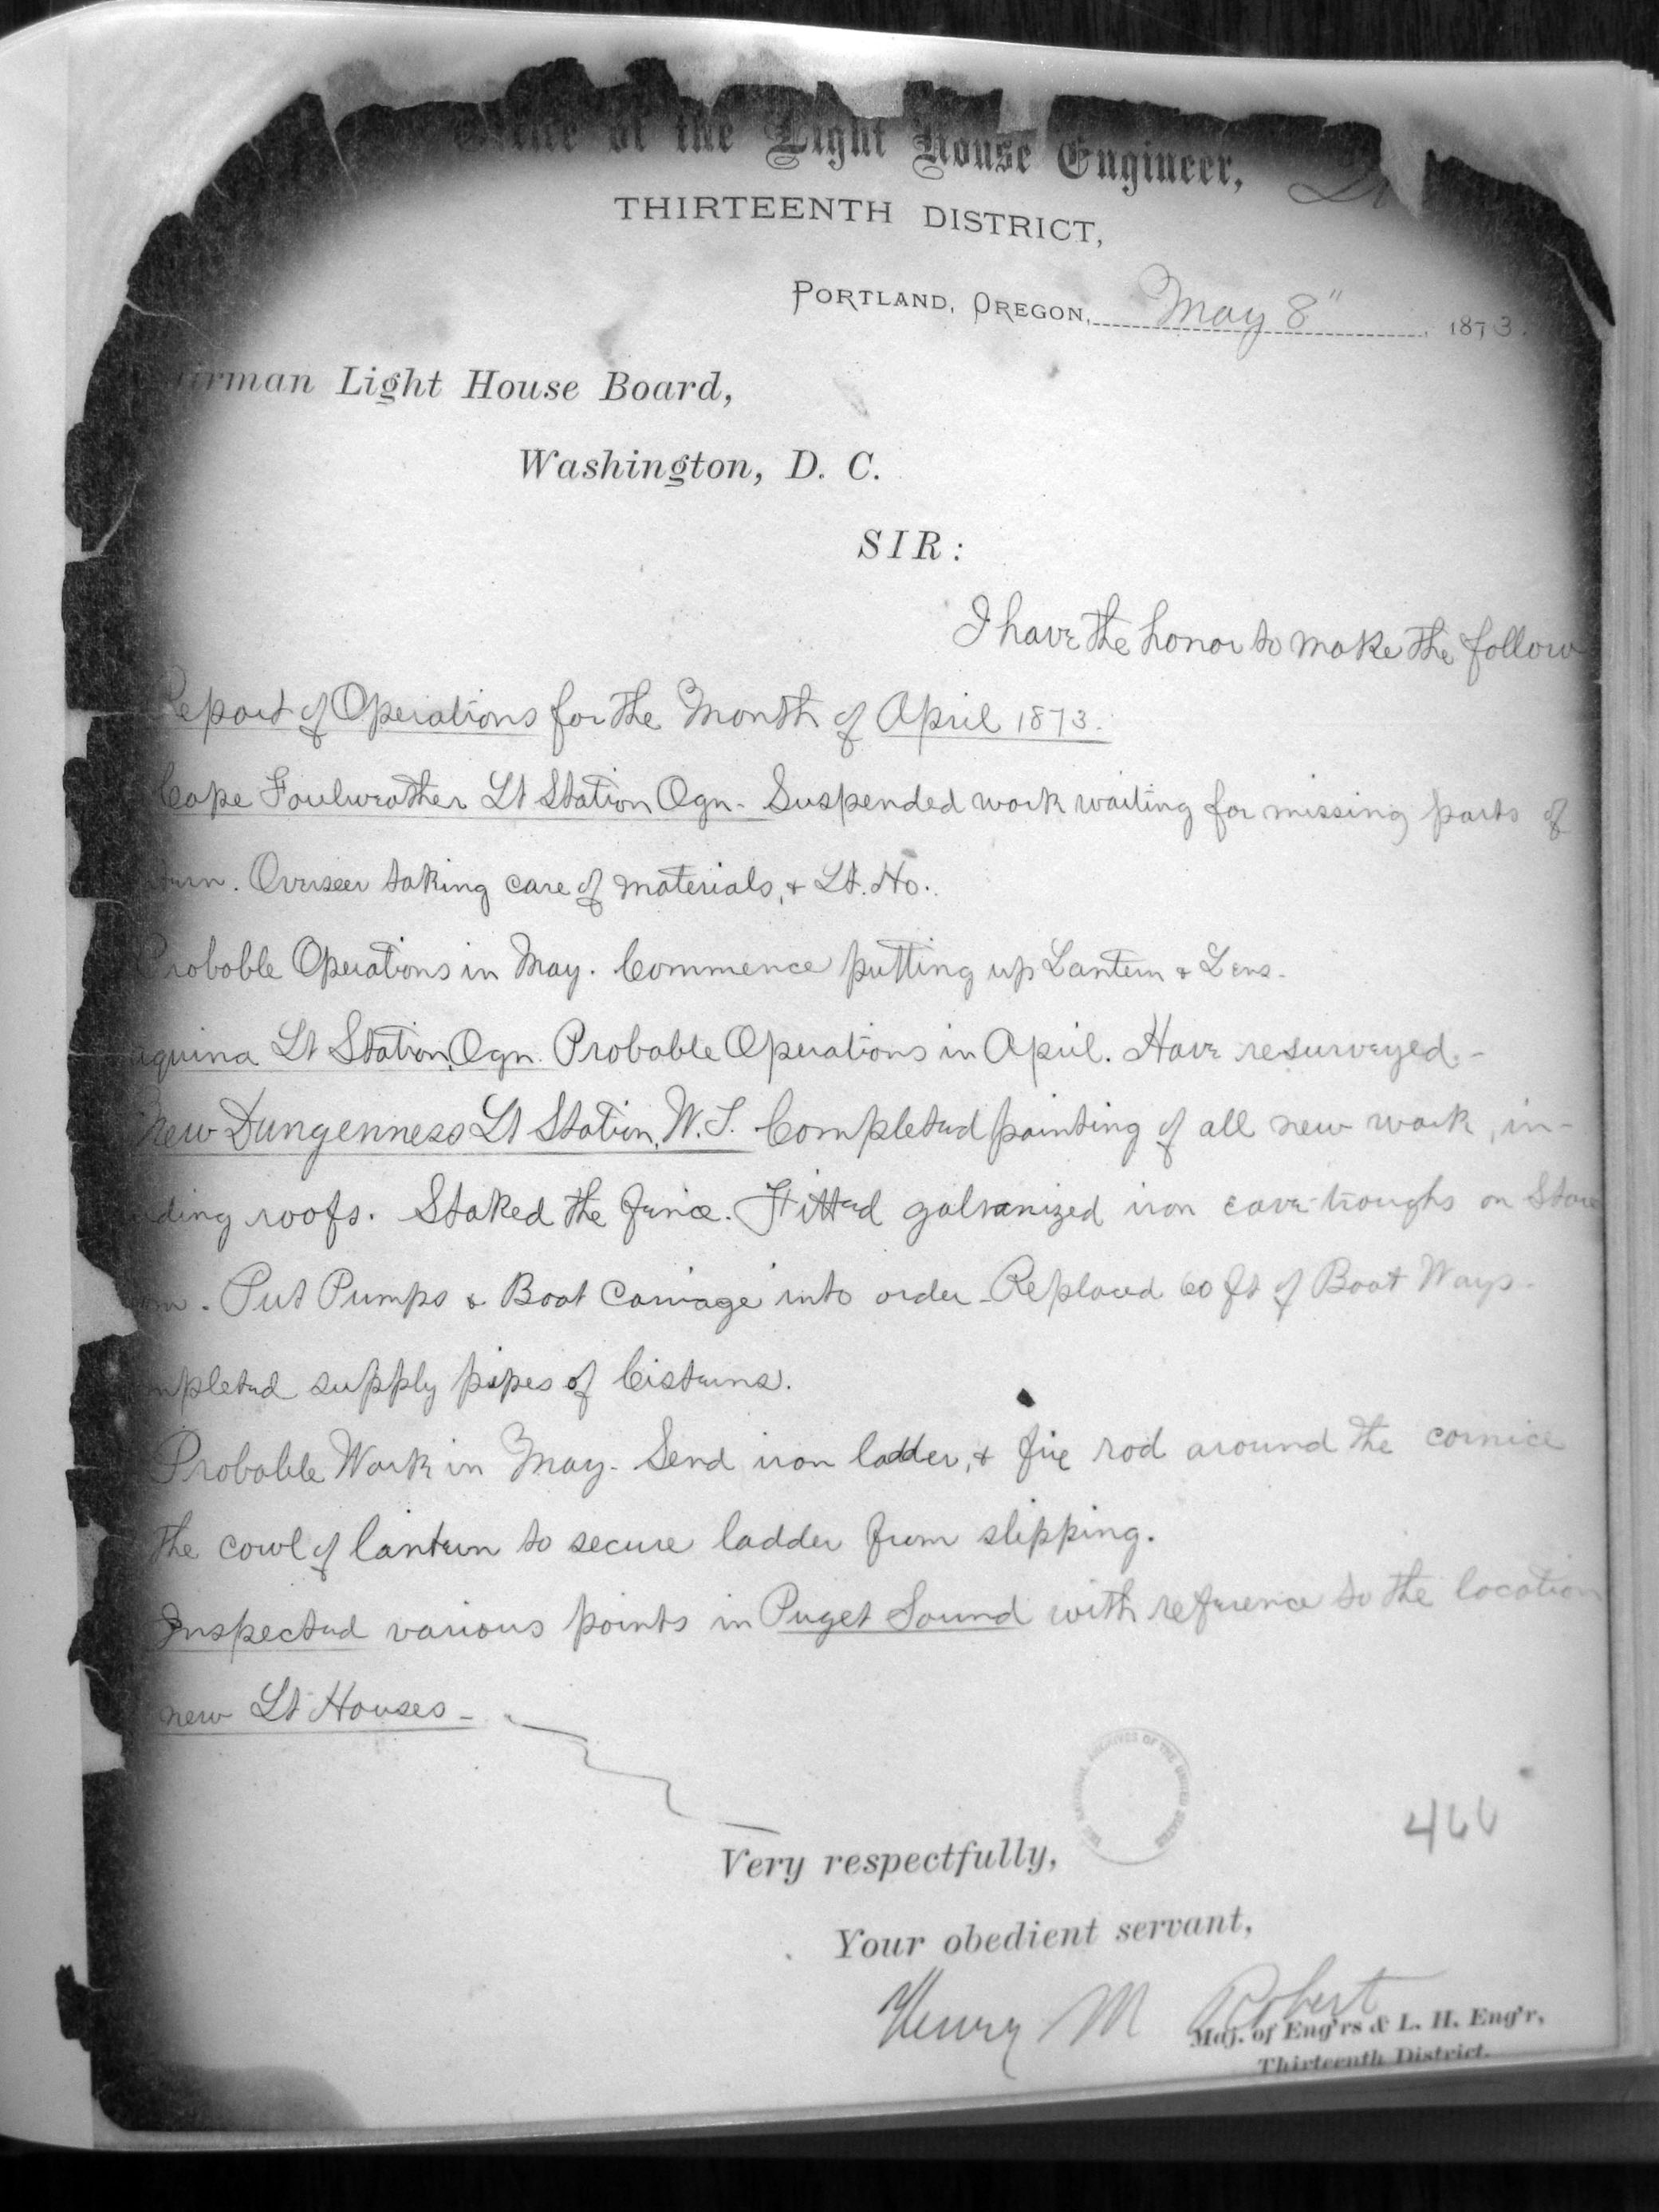 Office of the Light House Engineer,
THIRTEENTH DISTRICT,
PORTLAND, OREGON, May 8" 1873.
irman Light House Board,
Washington, D. C.
SIR:
I have the honor to make the follow
Report of Operations for the Month of April 1873.
Cape Foulweather Lt Station Ogn- Suspended work waiting for missing parts of
tern. Overseer taking care of materials, & Lt. Ho.
Probable Operations in May. Commence putting up Lantern & Lens.
aquina Lt Station, Ogn. Probable Operations in April. Have resurveyed.-
New Dungenness Lt Station, W.T. Completed painting of all new work, in-
uding roofs. Staked the fence. Fitted galvanized iron eave-troughs on Store
om. Put Pumps & Boat Carriage into order- Replaced 60 ft of Boat Ways-
mpleted supply pipes of Cisterns.
Probable Work in May- Send iron ladder, & fix rod around the cornice
the cowl of lantern to secure ladder from slipping.
Inspected various points in Puget Sound with reference to the location
new Lt Houses-
THE NATIONAL ARCHIVES OF THE UNITED STATES
466
Very respectfully,
Your obedient servant,
Henry M Robert
Maj. of Eng'rs & L. H. Eng'r,
Thirteenth District.